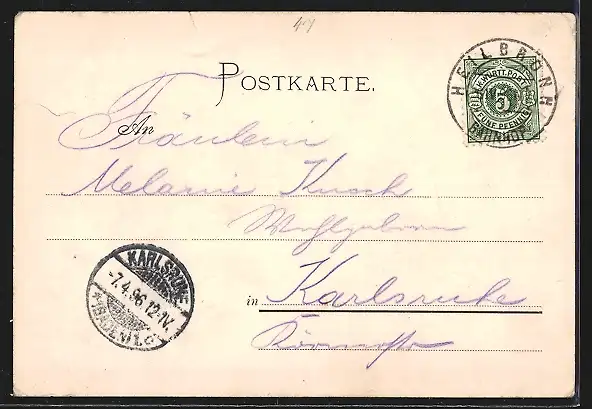 47
POSTKARTE.
HEILBRONN
BAHNHOF
K. WÜRTT. POST
5
FÜNF PFENNIG
An Fräulein
Melanie Kusch
Wohlgeboren
KARLSRUHE
-7.4.96.12-1V.
*(BADEN)1.c*
in Karlsruhe